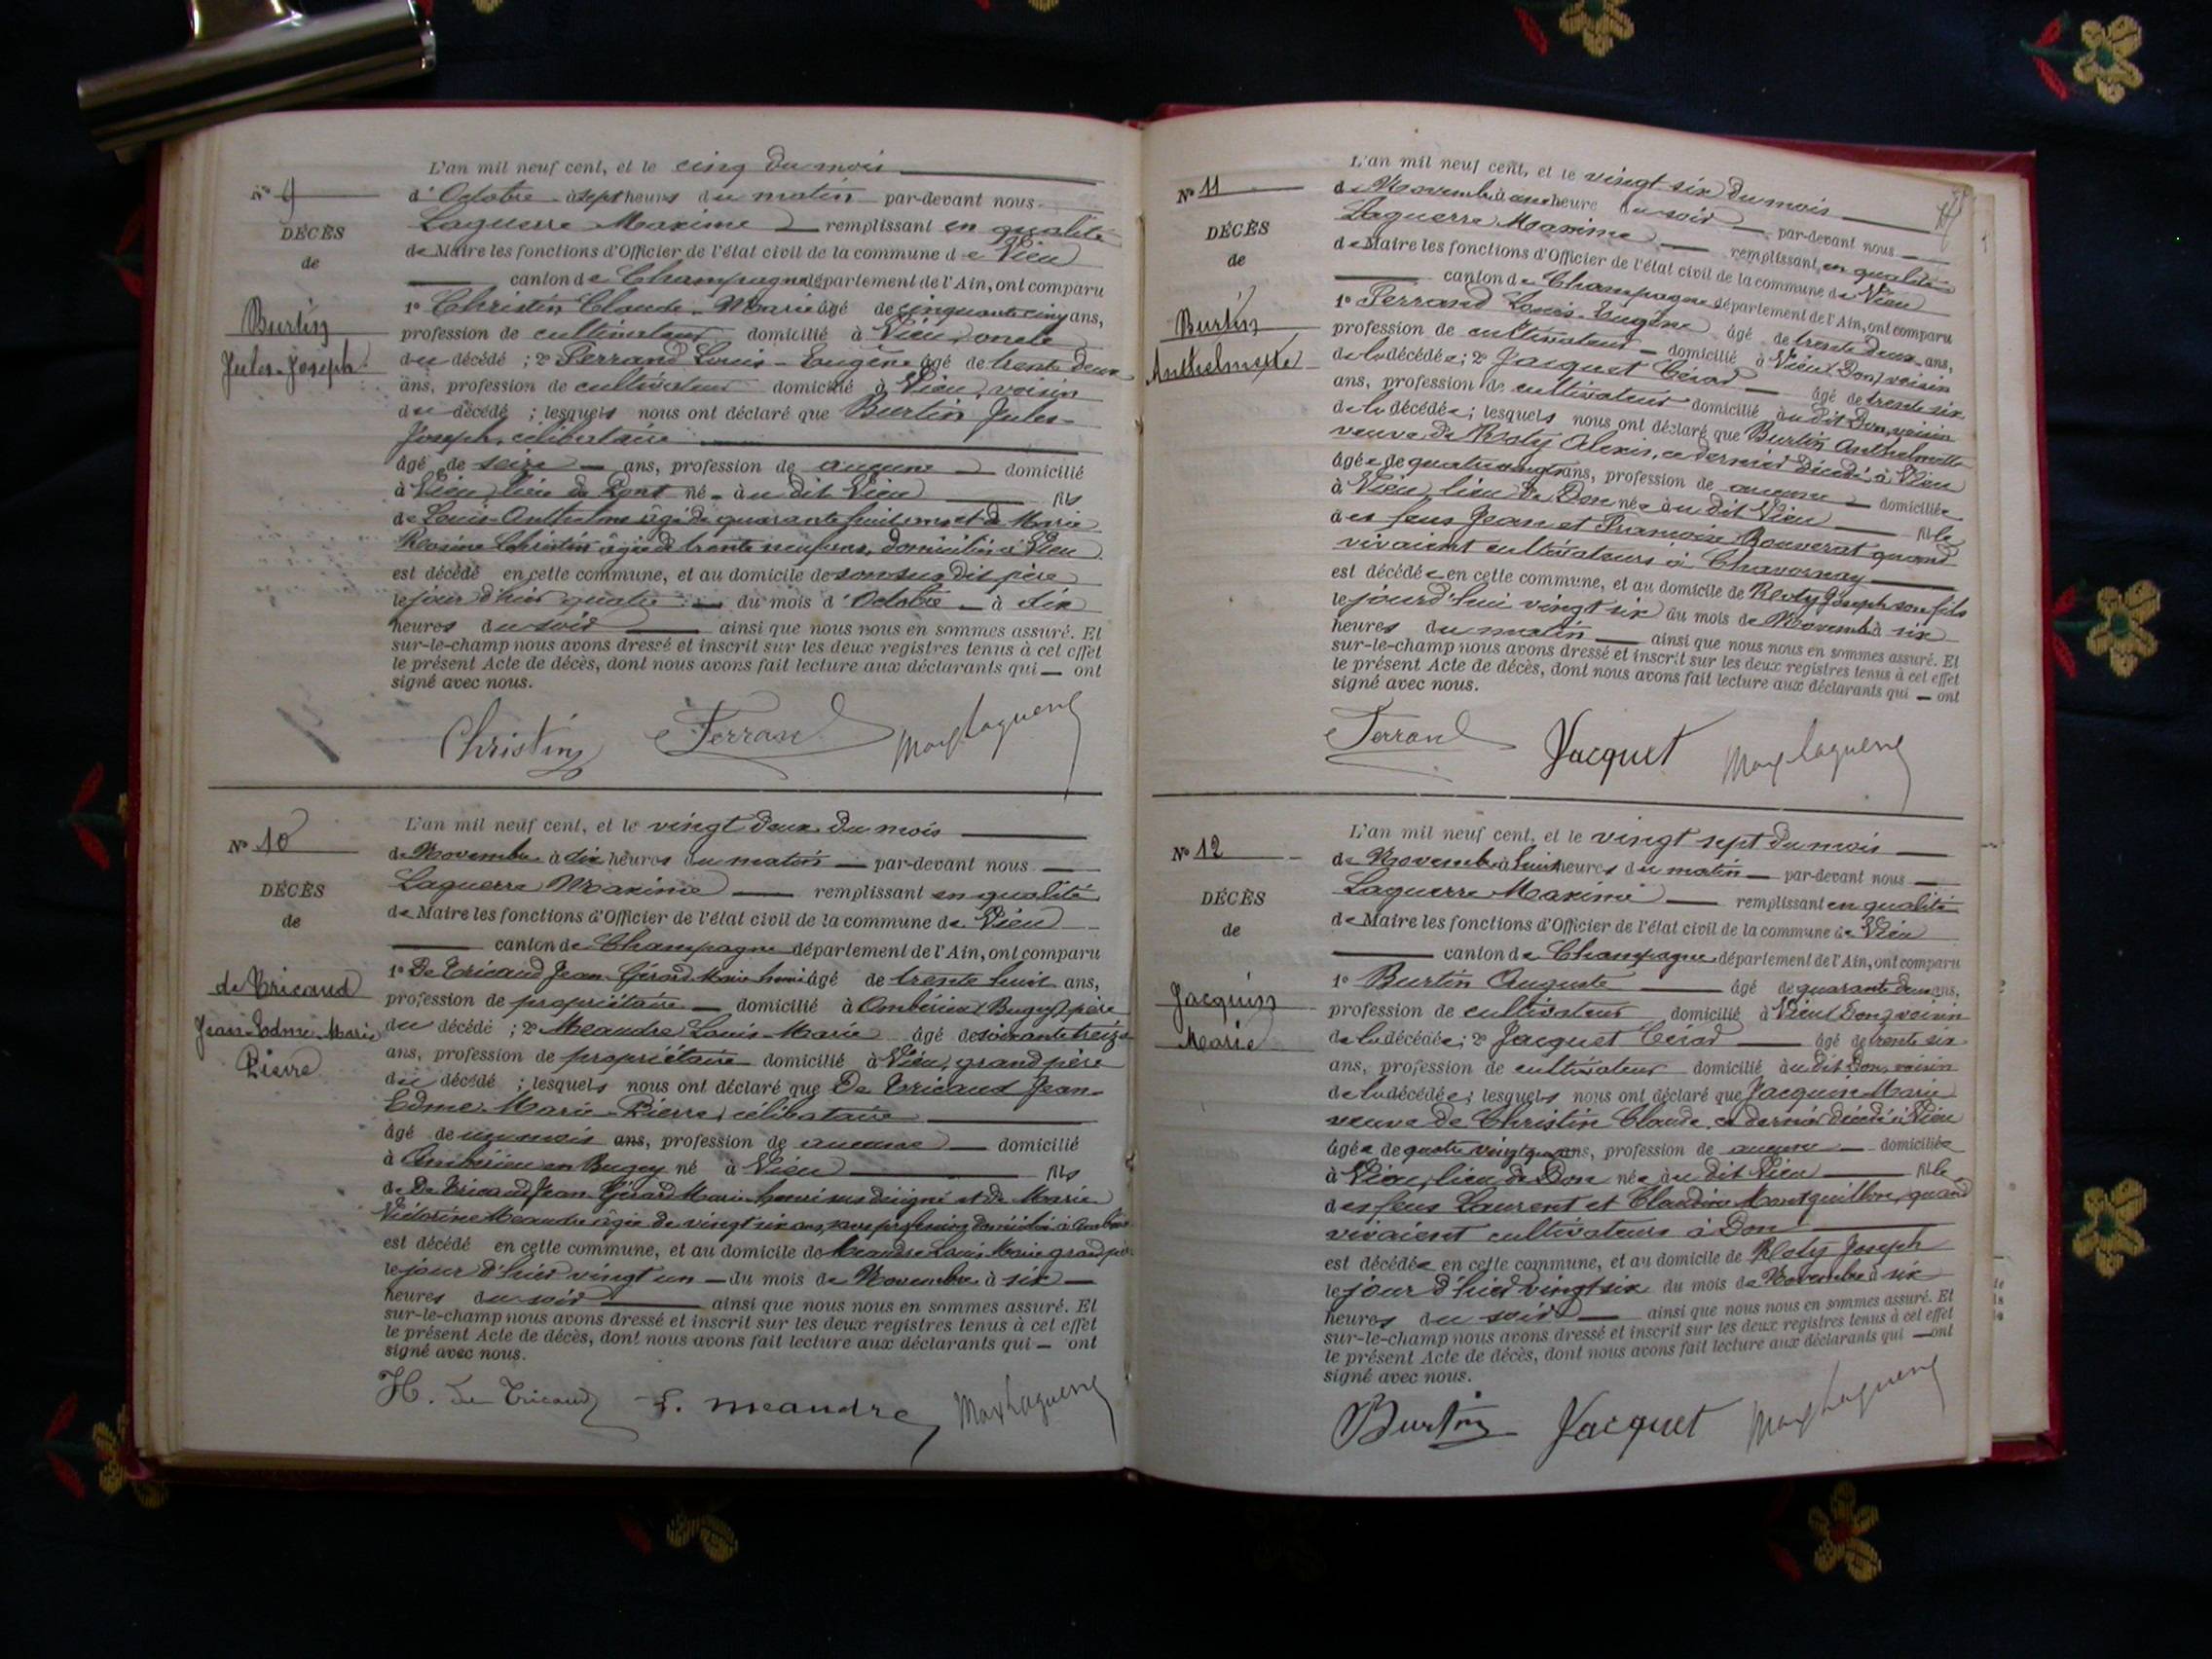 L'an mil neuf cent, et le cinq du mois
N° 9
d'Octobre à sept heures du matin par-devant nous
DÉCÈS
Laguerre Maxime remplissant en qualité
de Maire les fonctions d'Officier de l'état civil de la commune de Vieu
de
canton de Champagne département de l'Ain, ont comparu
1° Christin Claude-Marie âgé de cinquante cinq ans,
Burtin
profession de cultivateur domicilié à Vieu, oncle
Jules-Joseph
du décédé ; 2° Ferrand Louis-Eugène âgé de trente deux
ans, profession de cultivateur domicilié à Vieu, voisin
du décédé ; lesquels nous ont déclaré que Burtin Jules-
Joseph, célibataire
âgé de seize ans, profession de aucune domicilié
à Vieu, lieu de Dont né à u dit Vieu fils
de Louis-Anthelme âgé de quarante huit ans et de Marie
Rosine Christin âgée de trente neuf ans, domiciliés à Vieu
est décédé en cette commune, et au domicile de son sus dit père
le jour d'hier quatre du mois d'Octobre à dix
heures du soir ainsi que nous nous en sommes assuré. Et
sur-le-champ nous avons dressé et inscrit sur les deux registres tenus à cet effet
le présent Acte de décès, dont nous avons fait lecture aux déclarants qui ont
signé avec nous.
Christin Ferrand Max Laguerre
L'an mil neuf cent, et le vingt deux du mois
N° 10
de Novembre à dix heures du matin par-devant nous
DÉCÈS
Laguerre Maxime remplissant en qualité
de Maire les fonctions d'Officier de l'état civil de la commune de Vieu
de
canton de Champagne département de l'Ain, ont comparu
1° De Tricaud Jean-Gérard Marie henri âgé de trente huit ans,
de Tricaud
profession de propriétaire domicilié à Ambérieu (Bugey) père
Jean-Edme-Marie
du décédé ; 2° Meandre Louis-Marie âgé de soixante treize
Pierre
ans, profession de propriétaire domicilié à Vieu, grand père
du décédé ; lesquels nous ont déclaré que De Tricaud Jean-
Edme-Marie-Pierre, célibataire
âgé de un mois ans, profession de aucune domicilié
à Ambérieu en Bugey né à Vieu fils
de De Tricaud Jean Gérard Marie henri sus désigné et de Marie
Victorine Meandre âgée de vingt six ans, sans profession domiciliés à
est décédé en cette commune, et au domicile de Meandre Louis Marie grand père
le jour d'hier vingt un du mois de Novembre à six
heures du soir ainsi que nous nous en sommes assuré. Et
sur-le-champ nous avons dressé et inscrit sur les deux registres tenus à cet effet
le présent Acte de décès, dont nous avons fait lecture aux déclarants qui ont
signé avec nous.
H. de Tricaud L. Meandre Max Laguerre
L'an mil neuf cent, et le vingt six du mois
N° 11
de Novembre à une heure du soir par-devant nous
DÉCÈS
Laguerre Maxime remplissant en qualité
de
de Maire les fonctions d'Officier de l'état civil de la commune de Vieu
canton de Champagne département de l'Ain, ont comparu
1° Ferrand Louis-Eugène âgé de trente deux ans,
Burtin
profession de cultivateur domicilié à Vieu (Don) voisin
Anthelmette
de la décédée ; 2° Jacquet Cérad âgé de trente six
ans, profession de cultivateur domicilié à u dit Don, voisin
de la décédée ; lesquels nous ont déclaré que Burtin Anthelmette
veuve de Roty Alexis, ce dernier décédé à Vieu
âgée de quatre vingt ans, profession de aucune domiciliée
à Vieu, lieu de Don née à u dit Vieu fille
des feus Jean et Françoise Bouverat quand
vivaient cultivateurs à Chavornay
est décédée en cette commune, et au domicile de Roty Joseph son fils
le jourd'hui vingt six du mois de Novembre à six
heures du matin ainsi que nous nous en sommes assuré. Et
sur-le-champ nous avons dressé et inscrit sur les deux registres tenus à cet effet
le présent Acte de décès, dont nous avons fait lecture aux déclarants qui ont
signé avec nous.
Ferrand Jacquet Max Laguerre
L'an mil neuf cent, et le vingt sept du mois
N° 12
de Novembre à huit heures du matin par-devant nous
DÉCÈS
Laguerre Maxime remplissant en qualité
de
de Maire les fonctions d'Officier de l'état civil de la commune de Vieu
canton de Champagne département de l'Ain, ont comparu
1° Burtin Auguste âgé de quarante deux ans,
Jacquin
profession de cultivateur domicilié à Vieu (Don) voisin
Marie
de la décédée ; 2° Jacquet Cérad âgé de trente six
ans, profession de cultivateur domicilié à u dit Don, voisin
de la décédée ; lesquels nous ont déclaré que Jacquin Marie
veuve de Christin Claude, ce dernier décédé à Vieu
âgée de quatre vingt ans, profession de aucune domiciliée
à Vieu, lieu de Don née à u dit Vieu fille
des feus Laurent et Claudine Montguillon, quand
vivaient cultivateurs à Don
est décédée en cette commune, et au domicile de Roty Joseph
le jour d'hier vingt six du mois de Novembre à six
heures du soir ainsi que nous nous en sommes assuré. Et
sur-le-champ nous avons dressé et inscrit sur les deux registres tenus à cet effet
le présent Acte de décès, dont nous avons fait lecture aux déclarants qui ont
signé avec nous.
Burtin Jacquet Max Laguerre